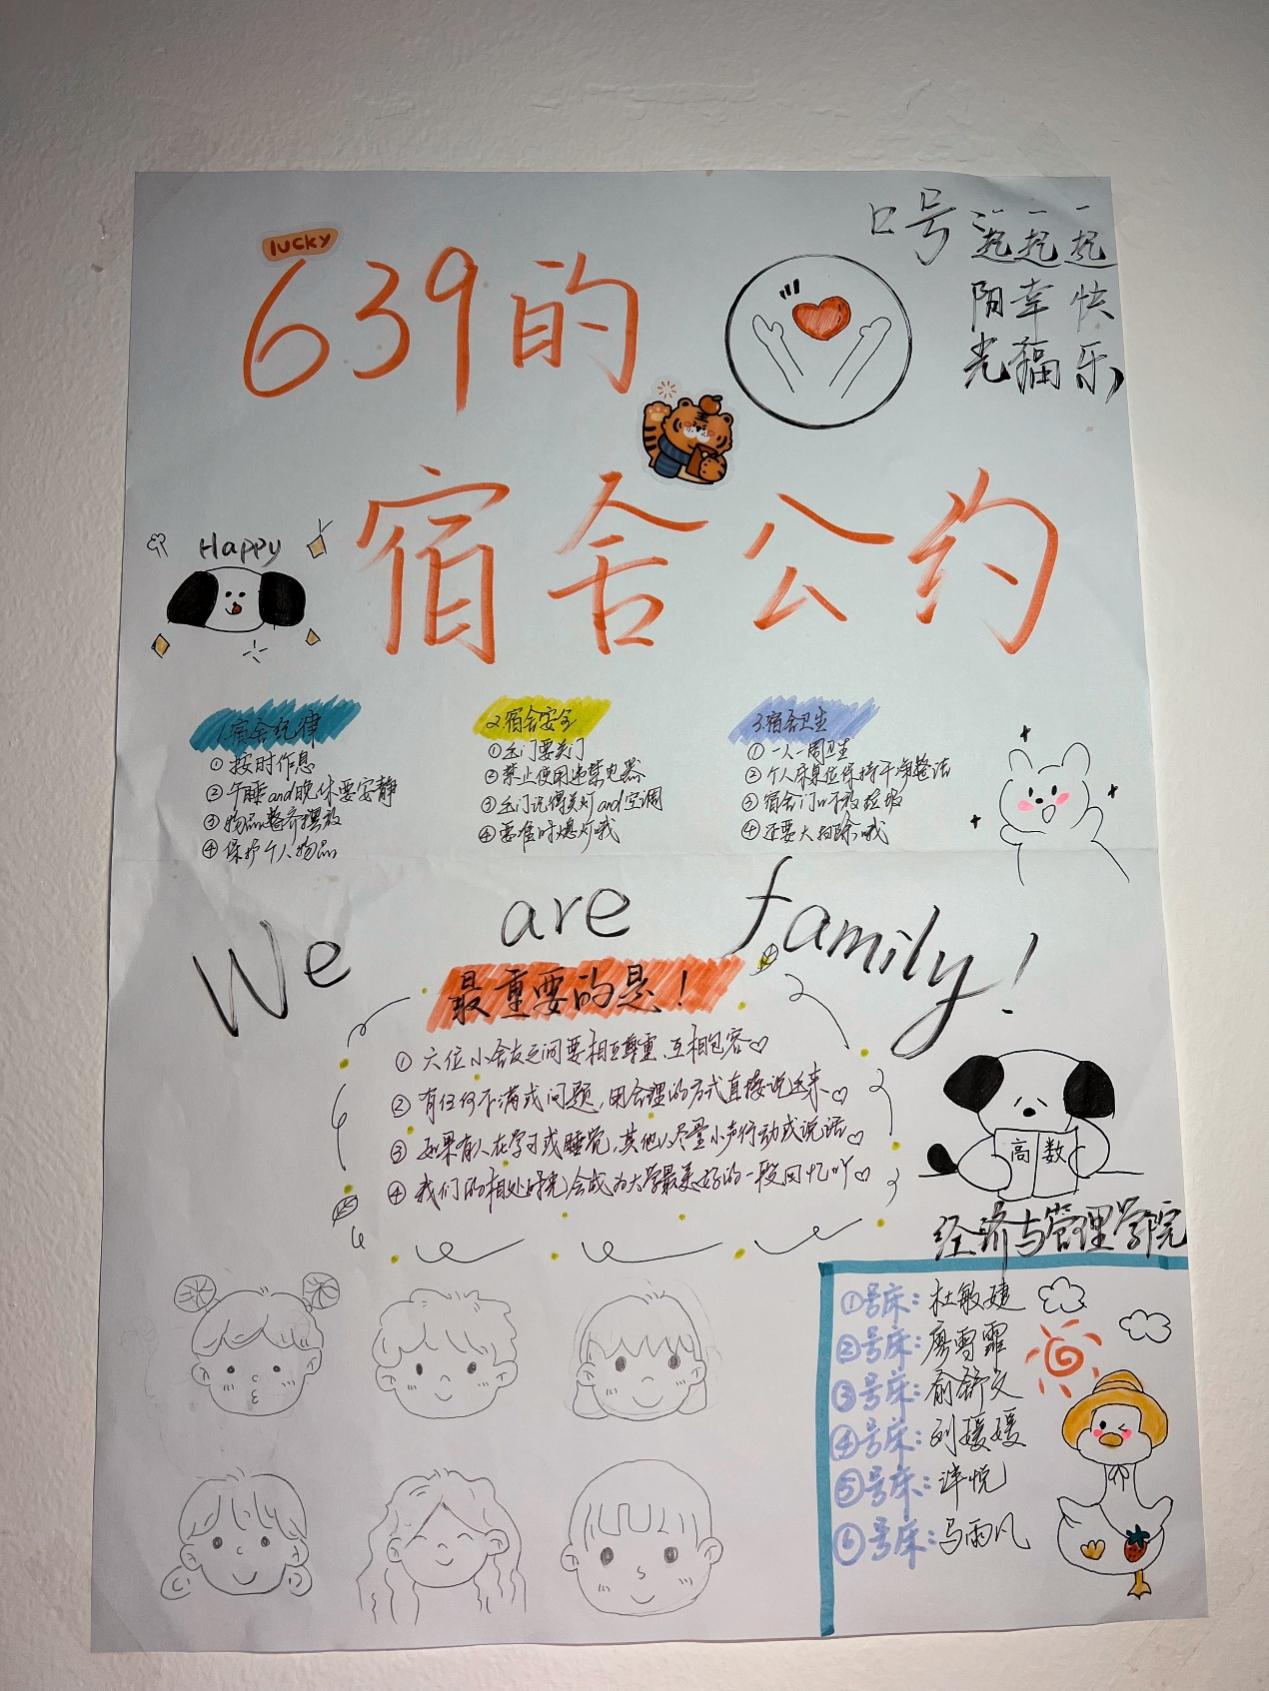 lucky
639的
宿舍公约
口号
一起阳光
一起幸福
一起快乐
Happy
1.宿舍纪律
①按时作息
②午睡and晚休要安静
③物品整齐摆放
④保护个人物品
2.宿舍安全
①出门要关门
②禁止使用违禁电器
③出门记得关灯and空调
④要准时熄灯哦
3.宿舍卫生
①一人一周卫生
②个人床桌位保持干净整洁
③宿舍门口不放垃圾
④还要大扫除哦
We are family!
最重要的是！
①六位小舍友之间要相互尊重、互相包容♡
②有任何不满或问题,用合理的方式直接说出来♡
③如果有人在学习或睡觉,其他人尽量小声行动或说话♡
④我们的相处时光会成为大学最美好的一段回忆吖♡
高数
经济与管理学院
①号床：杜敏婕
②号床：廖雪霏
③号床：俞舒文
④号床：刘媛媛
⑤号床：悦
⑥号床：马雨凡